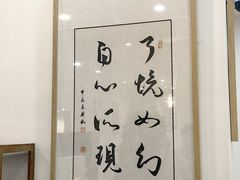 了境如幻
自心所現